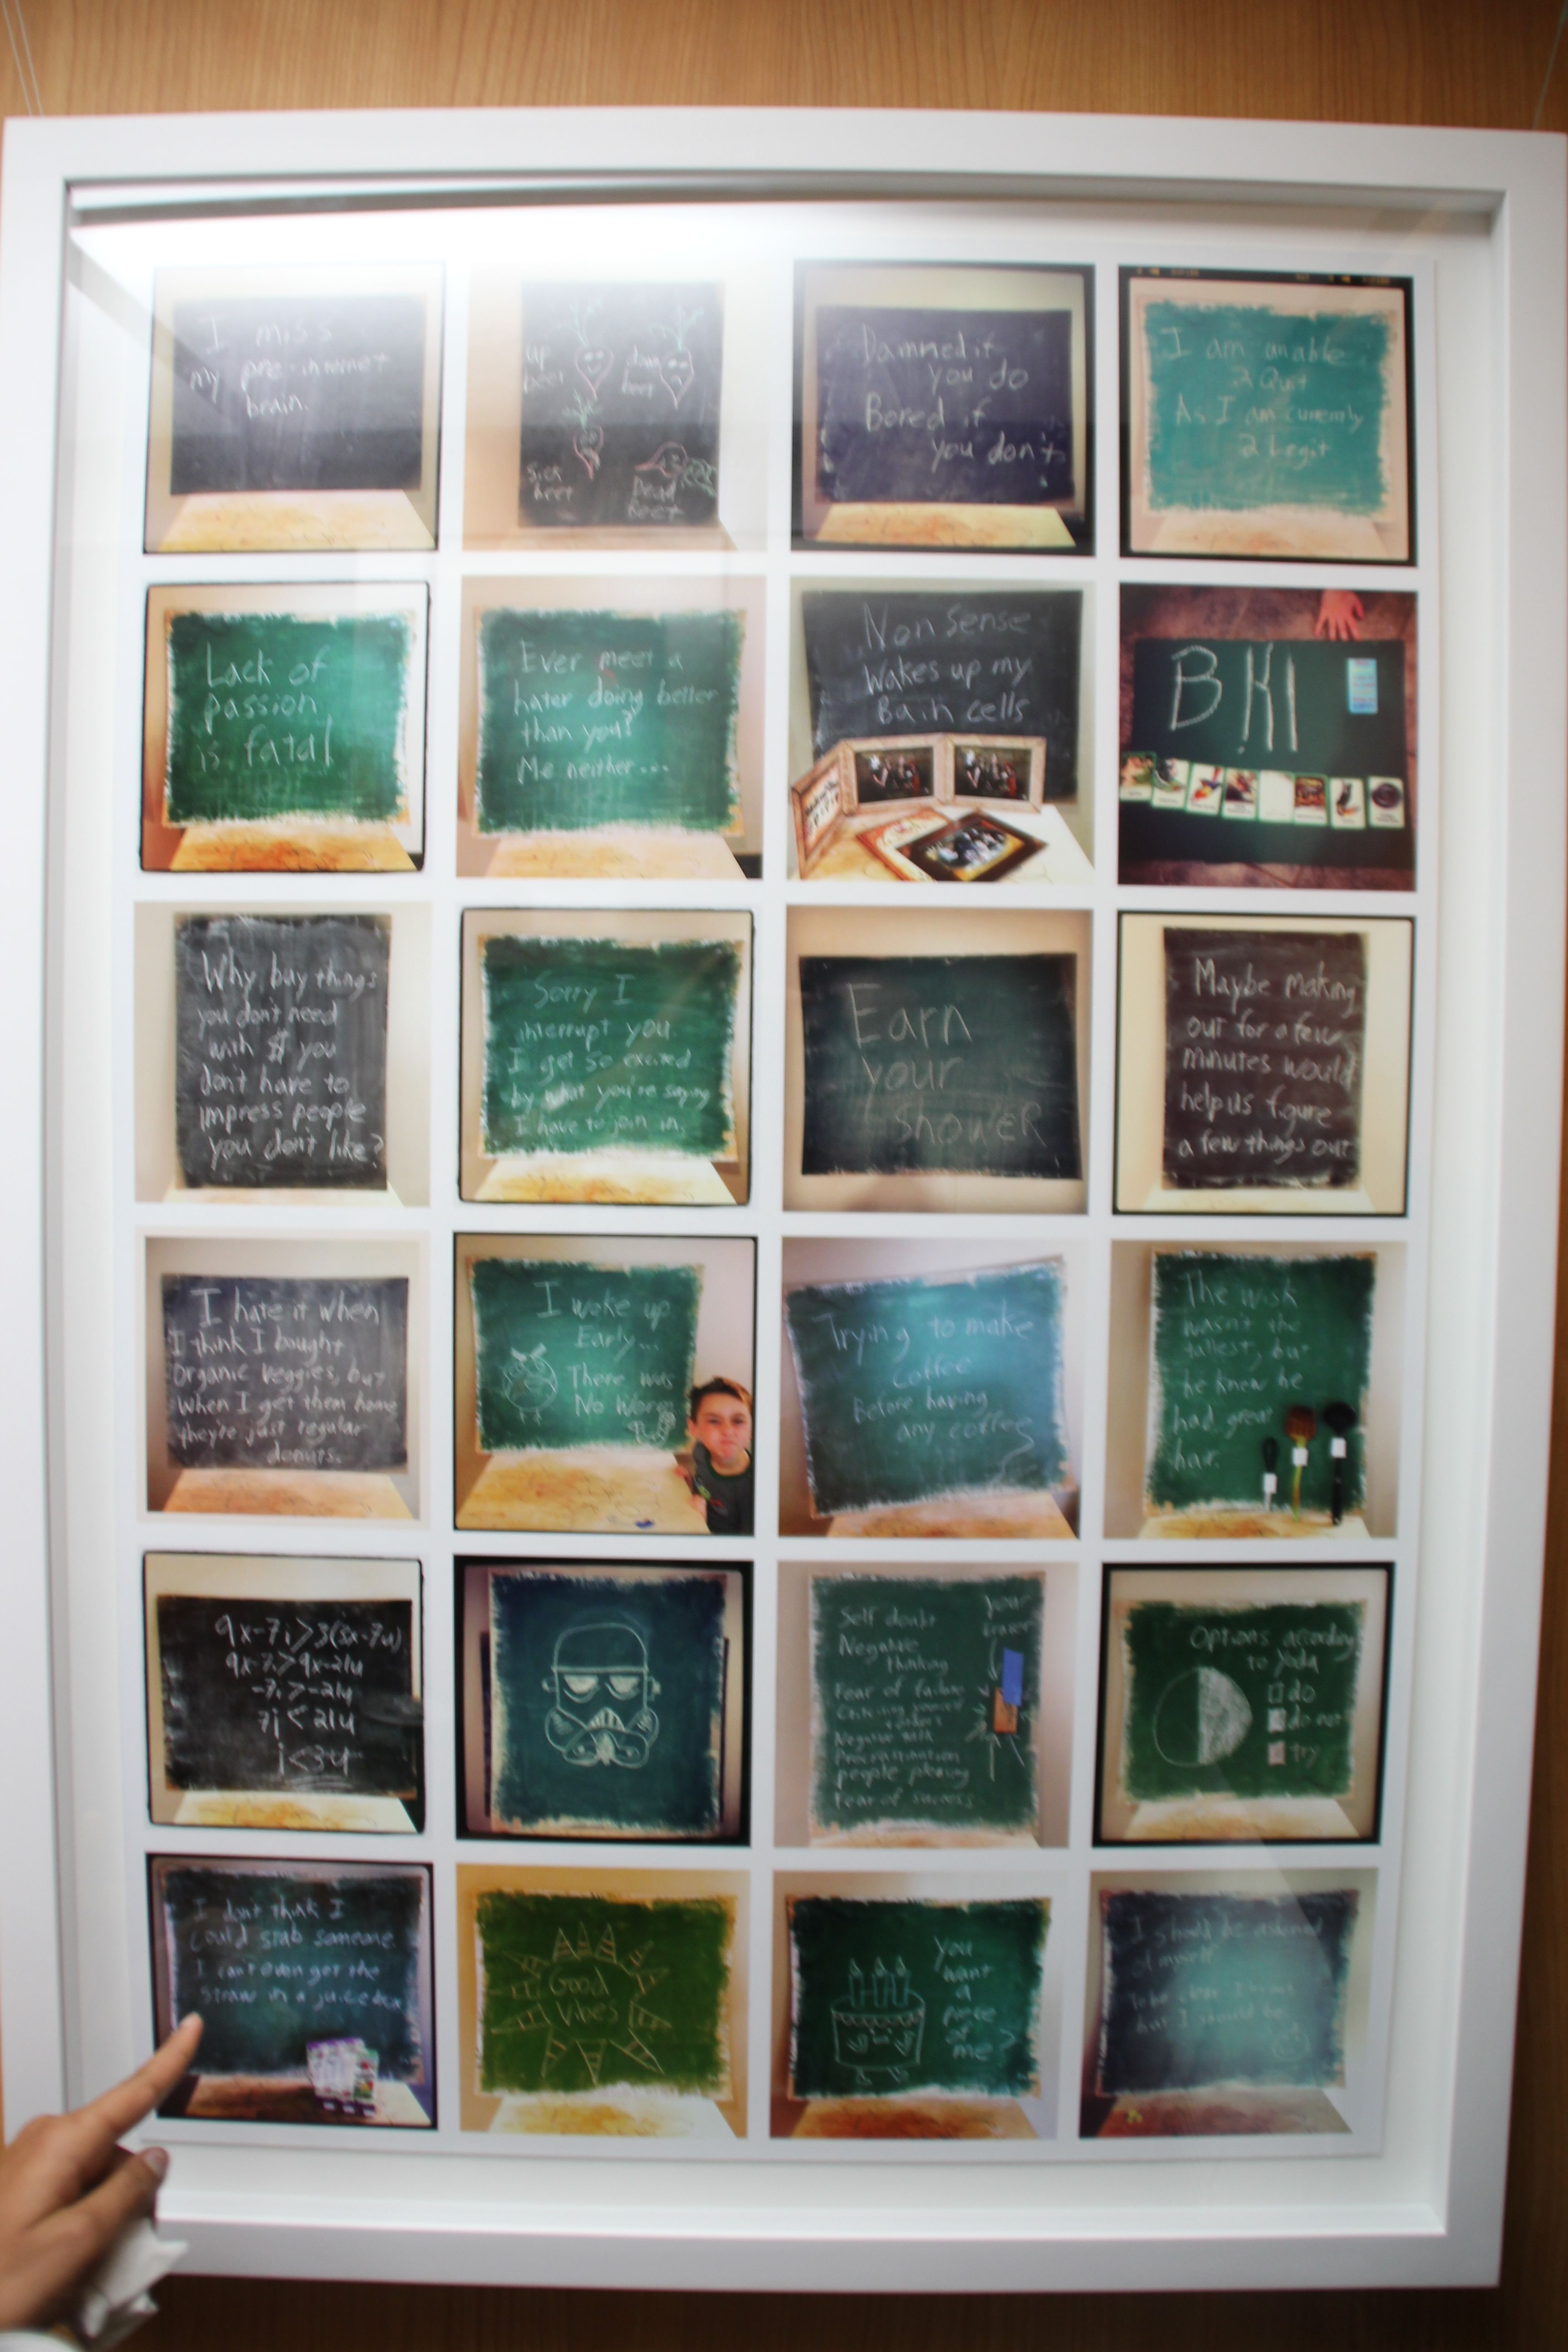 I miss
my pre-internet
brain.
up
beet
down
beet
sick
beet
Dead
Beet
Damned if
you do
Bored if
you don't
I am unable
2 Quit
As I am currently
2 Legit
Lack of
passion
is fatal
Ever meet a
hater doing better
than you?
Me neither...
Non Sense
Wakes up my
Bain cells
BKI
Why buy things
you don't need
with $ you
don't have to
impress people
you don't like?
Sorry I
interrupt you.
I get so excited
by what you're saying
I have to join in.
Earn
your
ShoweR
Maybe making
out for a few
minutes would
help us figure
a few things out
I hate it when
I think I bought
Organic veggies, but
when I get them home
they're just regular
donuts.
I woke up
Early...
There was
No Worm
Trying to make
coffee
Before having
any coffee
The Wish
wasn't the
tallest, but
he knew he
had great
hair.
9x-7i>3(3x-7u)
9x-7i>9x-21u
-7i>-21u
7i<21u
i<3u
Self doubt
Negative
thinking
Fear of failure
Negative talk
Procrastination
people pleasing
Fear of success
your
eraser
Options according
to Yoda
do
do not
try
I don't think I
could stab someone
I can't even get the
straw in a juicebox
Good
Vibes
You
want
a
piece
of
me?
I should be ashamed
of myself
To be clear I'm not
but I should be